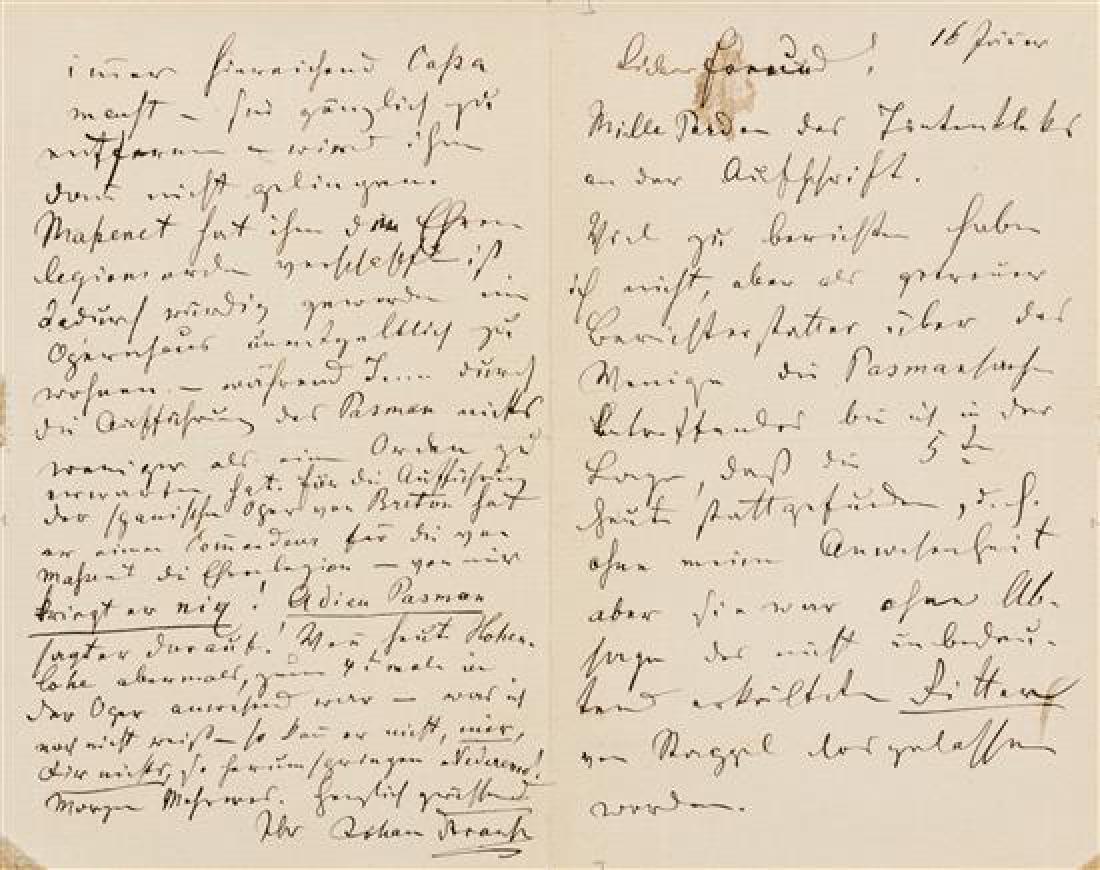 16 Jäner
Lieber Freund!
Mille Pardon des Tintenkleks
an der Aufschrift.
Viel zu berichten habe
ich nicht, aber als getreuer
Berichterstatter über das
Wenige die Pasmansache
betreffendes bin ich in der
Lage, daß die 5te
heute stattgefunden, d. h.
ohne meine Anwesenheit
aber sie war ohne Ab-
sage des nicht unbedeu-
tend erkälteten Ritter
von Stappel losgelassen
worden.
immer hinreichend Cassa
macht – sie gänzlich zu
entfernen – wird ihm
dann nicht gelingen.
Massenet hat ihm den Ehren
legionorden verschafft ist
dadurch würdig geworden im
Opernhaus unentgeltlich zu
wohnen – während Jenn durch
die Aufführung des Pasman nichts
weniger als ein Orden zu
erwarten hat. Für die Aufführung
der spanischen Oper von Breton hat
er einen Commandeur für die von
Massent die Ehrenlegion – von mir
kriegt er nix! Adieu Pasman
sagt er darauf! Wenn heute Hohen-
lohe abermals, zum 4ten male in
der Oper anwesend war – was ich
noch nicht weiß – so kann er nicht, mir,
für nichts, so herumspringen
Morgen Mehreres. Herzlich grüßend
Ihr Johann Strauss